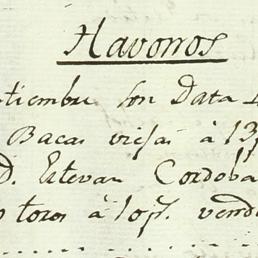 Havorros
tiembre son Data
Bacas viejas à 13p
D. Estevan Cordoba
toros à 10ps. vend